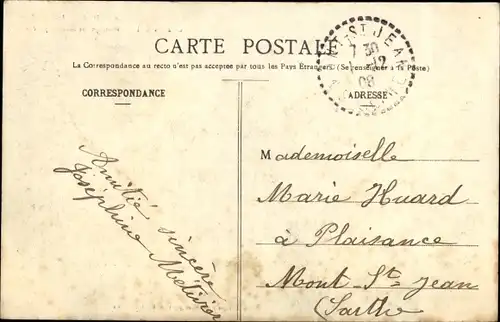 CARTE POSTALE
La Correspondance au recto n'est pas acceptée par tous les Pays Etrangers (Se renseigner à la Poste)
CORRESPONDANCE
ADRESSE
ST JEAN
7 30
12
08
Amitié sincère
Joséphine Métivier
Mademoiselle
Marie Huard
à Plaisance
Mont St= Jean
(Sarthe)